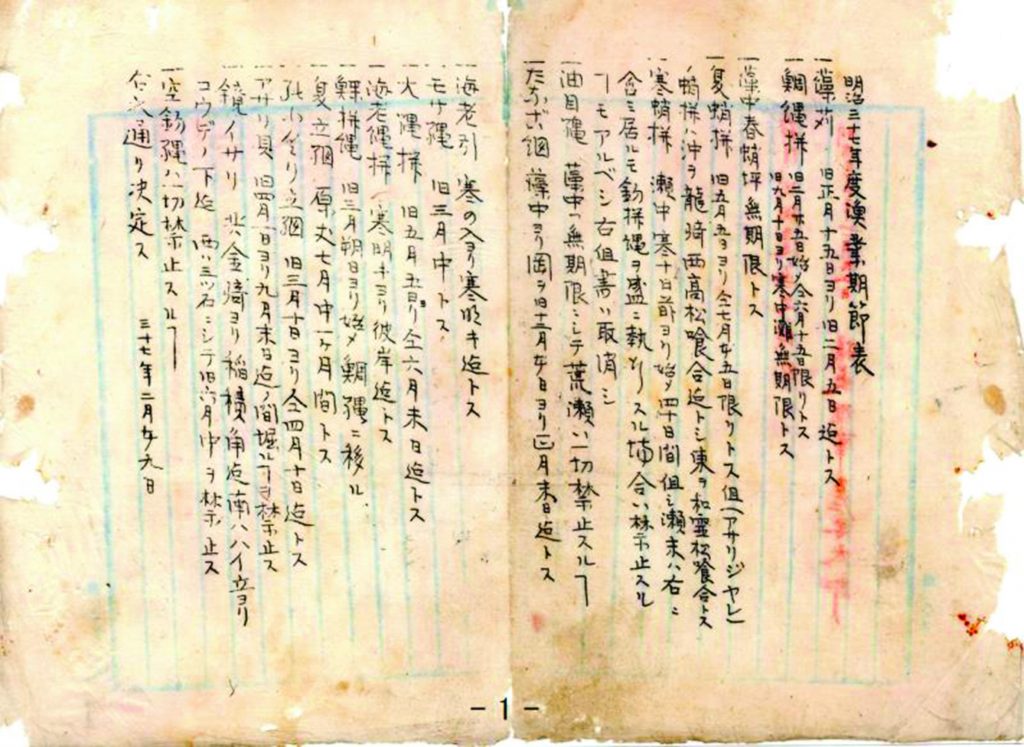 明治三十七年度漁業期節表
一藻刈 旧正月十五日ヨリ旧二月五日迄トス
一鯛縄拵 旧二月廿五日始メ仝六月十五日限リトス
旧九月十日ヨリ寒中灘無期限トス
一藻中春蛸坪無期限トス
一夏蛸拵 旧五月五日ヨリ仝七月廿五日限リトス但(アサリジヤレ)
蛸拵ハ沖ヲ龍﨑西高松喰合迄トシ東ヲ和霊松喰合トス
一寒蛸拵 瀬中寒十日前ヨリ始メ四十日間但シ瀬末ハ右ニ
含ミ居ルモ釣拵縄ヲ盛ニ執リスル場合ハ禁止スル
ヿモアルベシ右但書ハ取消シ
一油目縄 藻中ハ無期限ニシテ荒瀬ハ一切禁止スルヿ
一たなご網 藻中ヨリ岡ヲ旧十二月廿日ヨリ正月末日迄トス
一海老引 寒の入ヨリ寒明キ迄トス
一モサ縄 旧三月中トス
一大縄拵 旧五月五日ヨリ仝六月末日迄トス
一海老縄拵 寒明キヨリ彼岸迄トス
一鱓拵縄 旧三月朔日ヨリ始メ鯛縄ニ移ル
一夏立網 原丈七月中一ヶ月間トス
一 立網 旧三月十日ヨリ仝四月十日迄トス
一アサリ貝旧四月一日ヨリ九月末日迄ノ間堀ルヿヲ禁止ス
一鏡イサリ 北ハ金﨑ヨリ稲積角迄南ハハイ立ヨリ
コウデノ下迄 西ハ三ツ石ニシテ旧六月中ヲ禁止ス
一空釣縄ハ一切禁止スルヿ
右之通リ決定ス 三十七年二月廿九日
- 1 -